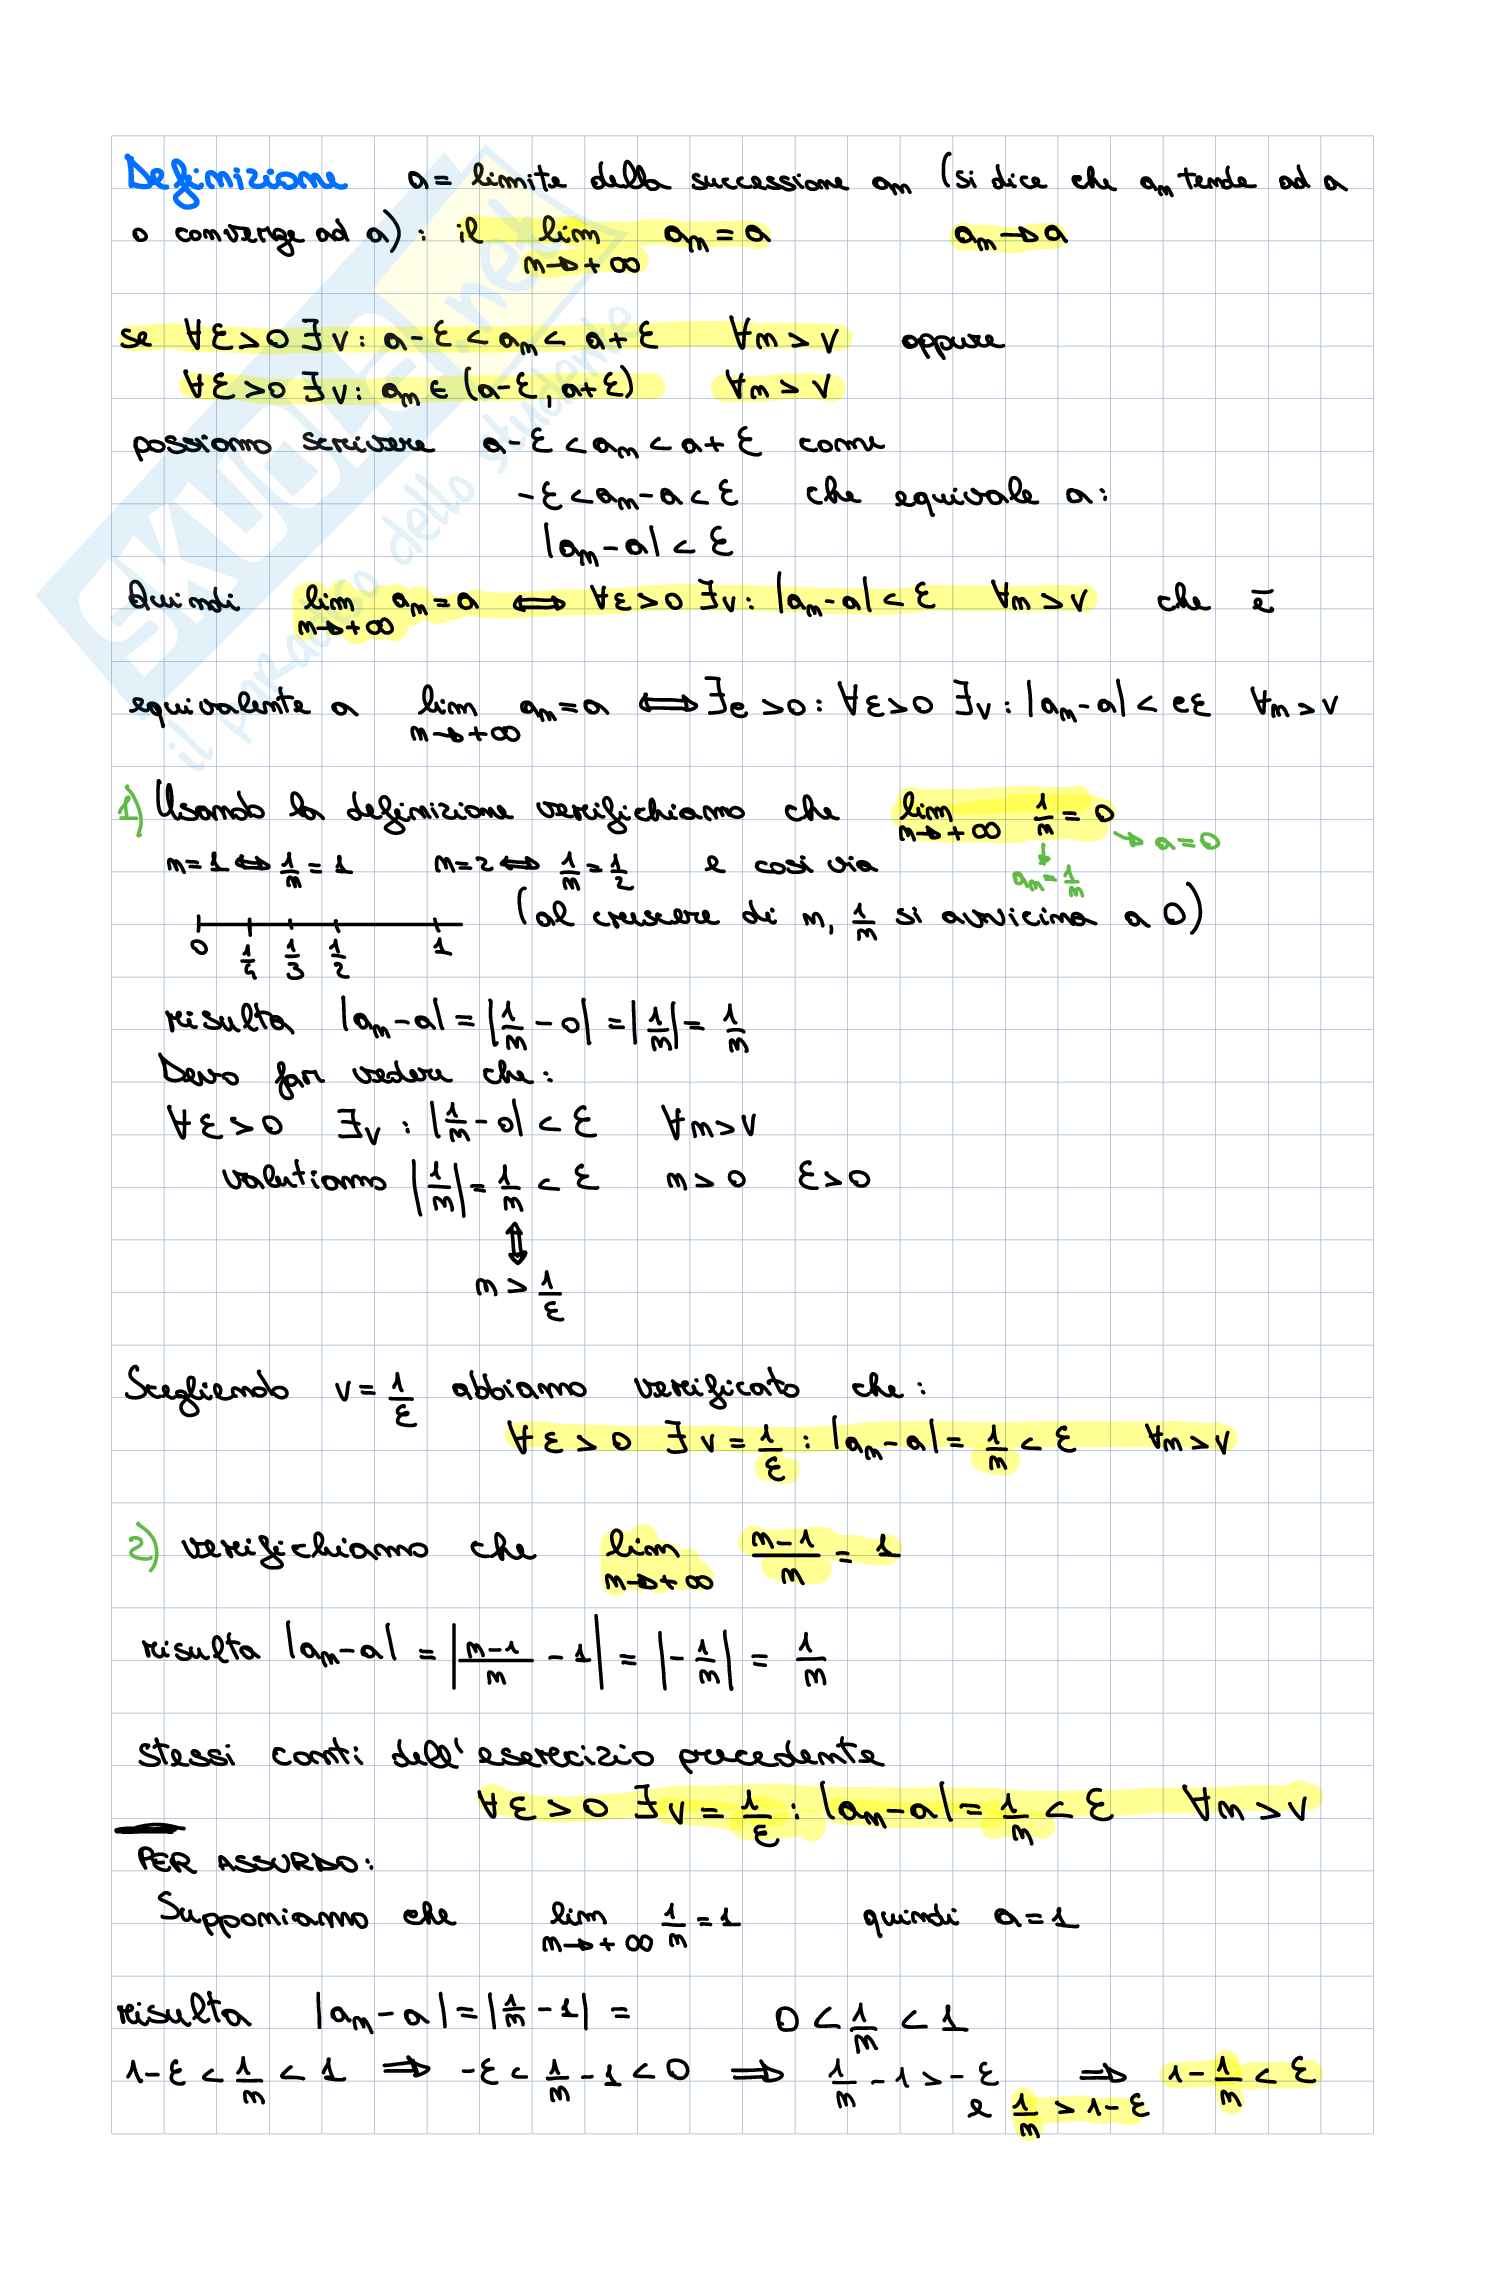 Definizione a = limite della successione aₙ (si dice che aₙ tende ad a
o converge ad a) : il lim aₙ = a aₙ → a
n→+∞
se ∀ε>0 ∃ν: a-ε < aₙ < a+ε ∀n>ν oppure
∀ε>0 ∃ν: aₙ ∈ (a-ε, a+ε) ∀n>ν
possiamo scrivere a-ε < aₙ < a+ε come
-ε < aₙ-a < ε che equivale a:
|aₙ-a| < ε
Quindi lim aₙ = a ⟺ ∀ε>0 ∃ν: |aₙ-a| < ε ∀n>ν che è
n→+∞
equivalente a lim aₙ = a ⟺ ∃c>0: ∀ε>0 ∃ν: |aₙ-a| < cε ∀n>ν
n→+∞
1) Usando la definizione verifichiamo che lim 1/n = 0 → a=0
n→+∞ ↓
n=1 ⟺ 1/n = 1 n=2 ⟺ 1/n = 1/2 e così via aₙ = 1/n
(al crescere di n, 1/n si avvicina a 0)
0 1/4 1/3 1/2 1
risulta |aₙ-a| = |1/n - 0| = |1/n| = 1/n
Devo far vedere che:
∀ε>0 ∃ν : |1/n - 0| < ε ∀n>ν
valutiamo |1/n| = 1/n < ε n>0 ε>0
⇕
n > 1/ε
Scegliendo ν = 1/ε abbiamo verificato che:
∀ε>0 ∃ν = 1/ε : |aₙ-a| = 1/n < ε ∀n>ν
2) verifichiamo che lim (n-1)/n = 1
n→+∞
risulta |aₙ-a| = |(n-1)/n - 1| = |-1/n| = 1/n
stessi conti dell'esercizio precedente
∀ε>0 ∃ν = 1/ε : |aₙ-a| = 1/n < ε ∀n>ν
PER ASSURDO:
Supponiamo che lim 1/n = 1 quindi a=1
n→+∞
risulta |aₙ-a| = |1/n - 1| = 0 < 1/n < 1
1-ε < 1/n < 1 ⟹ -ε < 1/n - 1 < 0 ⟹ 1/n - 1 > -ε ⟹ 1 - 1/n < ε
e 1/n > 1-ε
SKUOLA.net
il paradiso dello studente